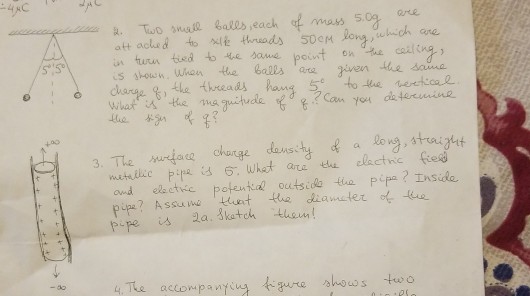 -4μC
2μC
2. Two small balls, each of mass 5.0g are
attached to silk threads 50cm long, which are
in turn tied to the same point on the ceiling,
is shown. When the balls are given the same
charge q, the threads hang 5° to the vertical.
What is the magnitude of q? Can you determine
the sign of q?
5° 5°
3. The surface charge density of a long, straight
metallic pipe is σ. What are the electric field
and electric potential outside the pipe? Inside
pipe? Assume that the diameter of the
pipe is 2a. Sketch them!
+∞
-∞
4. The accompanying figure shows two